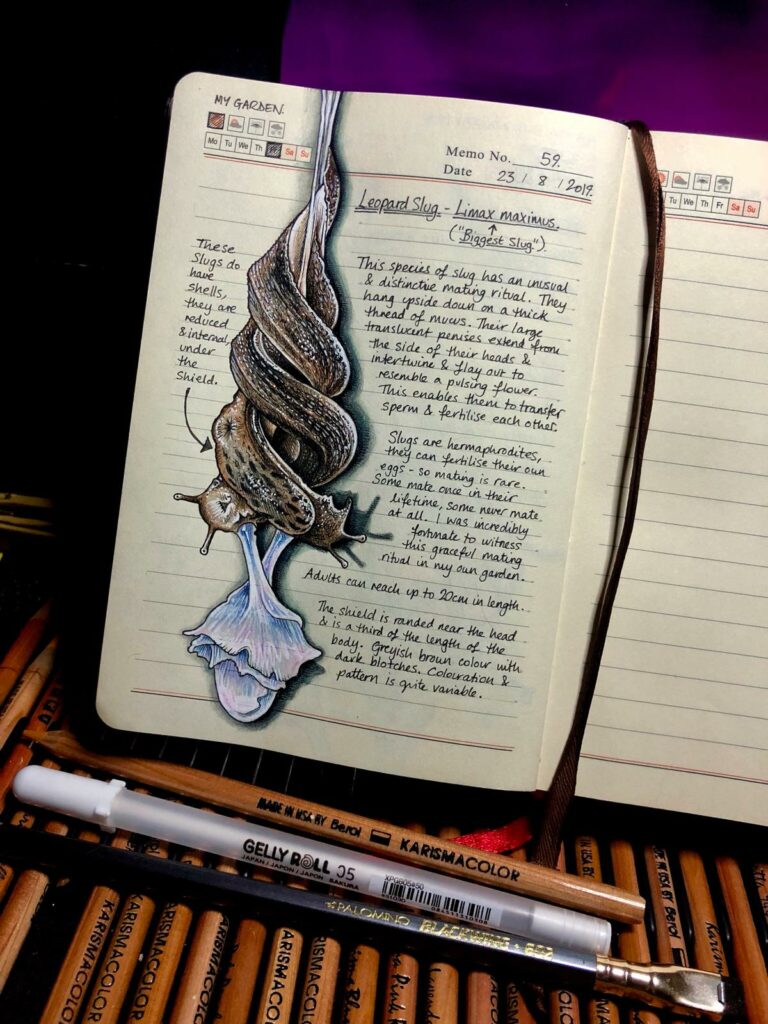 MY GARDEN.
Mo Tu We Th Sa Su
Memo No. 59.
Date 23 / 8 / 2019.
Leopard Slug. - Limax maximus.
("Biggest Slug").
These
Slugs do
have
shells,
they are
reduced
& internal,
under
the
shield.
This species of slug has an unusual
& distinctive mating ritual. They
hang upside down on a thick
thread of mucus. Their large
translucent penises extend from
the side of their heads &
intertwine & flay out to
resemble a pulsing flower.
This enables them to transfer
sperm & fertilise each other.
Slugs are hermaphrodites,
they can fertilise their own
eggs - so mating is rare.
Some mate once in their
lifetime, some never mate
at all. I was incredibly
fortunate to witness
this graceful mating
ritual in my own garden.
Adults can reach up to 20cm in length.
The shield is randed near the head
& is a third of the length of the
body. Greyish brown colour with
dark blotches. Colouration &
pattern is quite variable.
Tu We Th Fr Sa Su
MADE IN USA BY Berol KARISMACOLOR
GELLY ROLL 05
JAPAN / JAPON / JAPAN SAKURA
PALOMINO BLACKWING 602
KARISMACOLOR
KARISMACOLOR
KARISMACOLOR